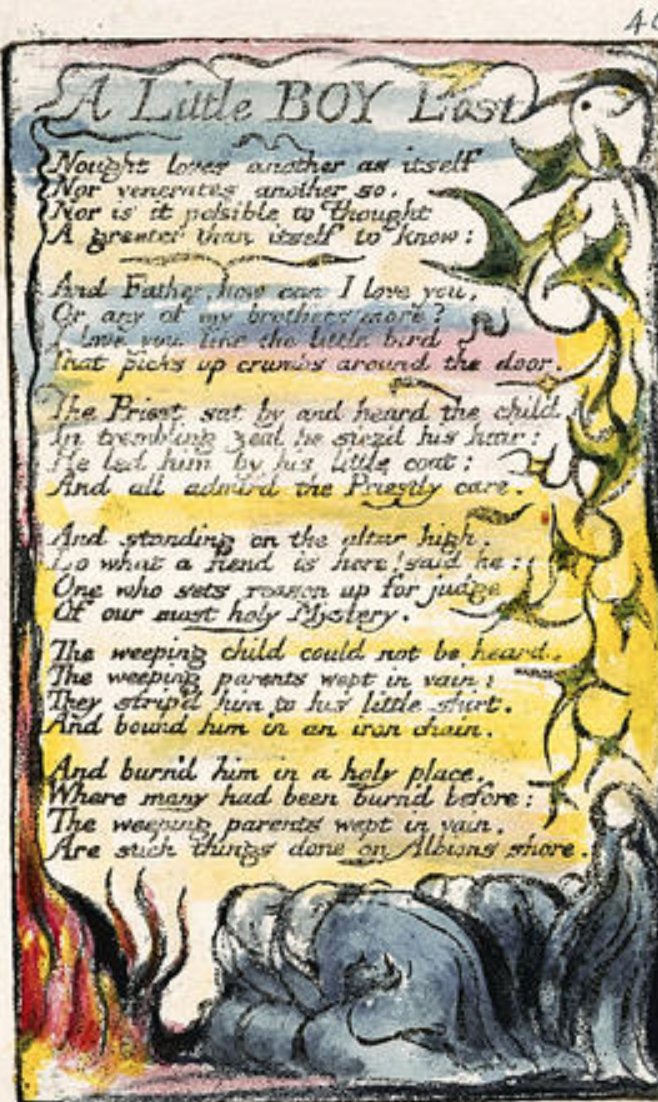 A Little BOY Lost
Nought loves another as itself
Nor venerates another so.
Nor is it poſsible to Thought
A greater than itself to know:
And Father, how can I love you,
Or any of my brothers more?
I love you like the little bird
That picks up crumbs around the door.
The Priest sat by and heard the child.
In trembling zeal he siez'd his hair:
He led him by his little coat:
And all admir'd the Priestly care.
And standing on the altar high.
Lo what a fiend is here! said he:
One who sets reason up for judge
Of our most holy Mystery.
The weeping child could not be heard.
The weeping parents wept in vain:
They strip'd him to his little shirt.
And bound him in an iron chain.
And burn'd him in a holy place.
Where many had been burn'd before:
The weeping parents wept in vain.
Are such things done on Albions shore.